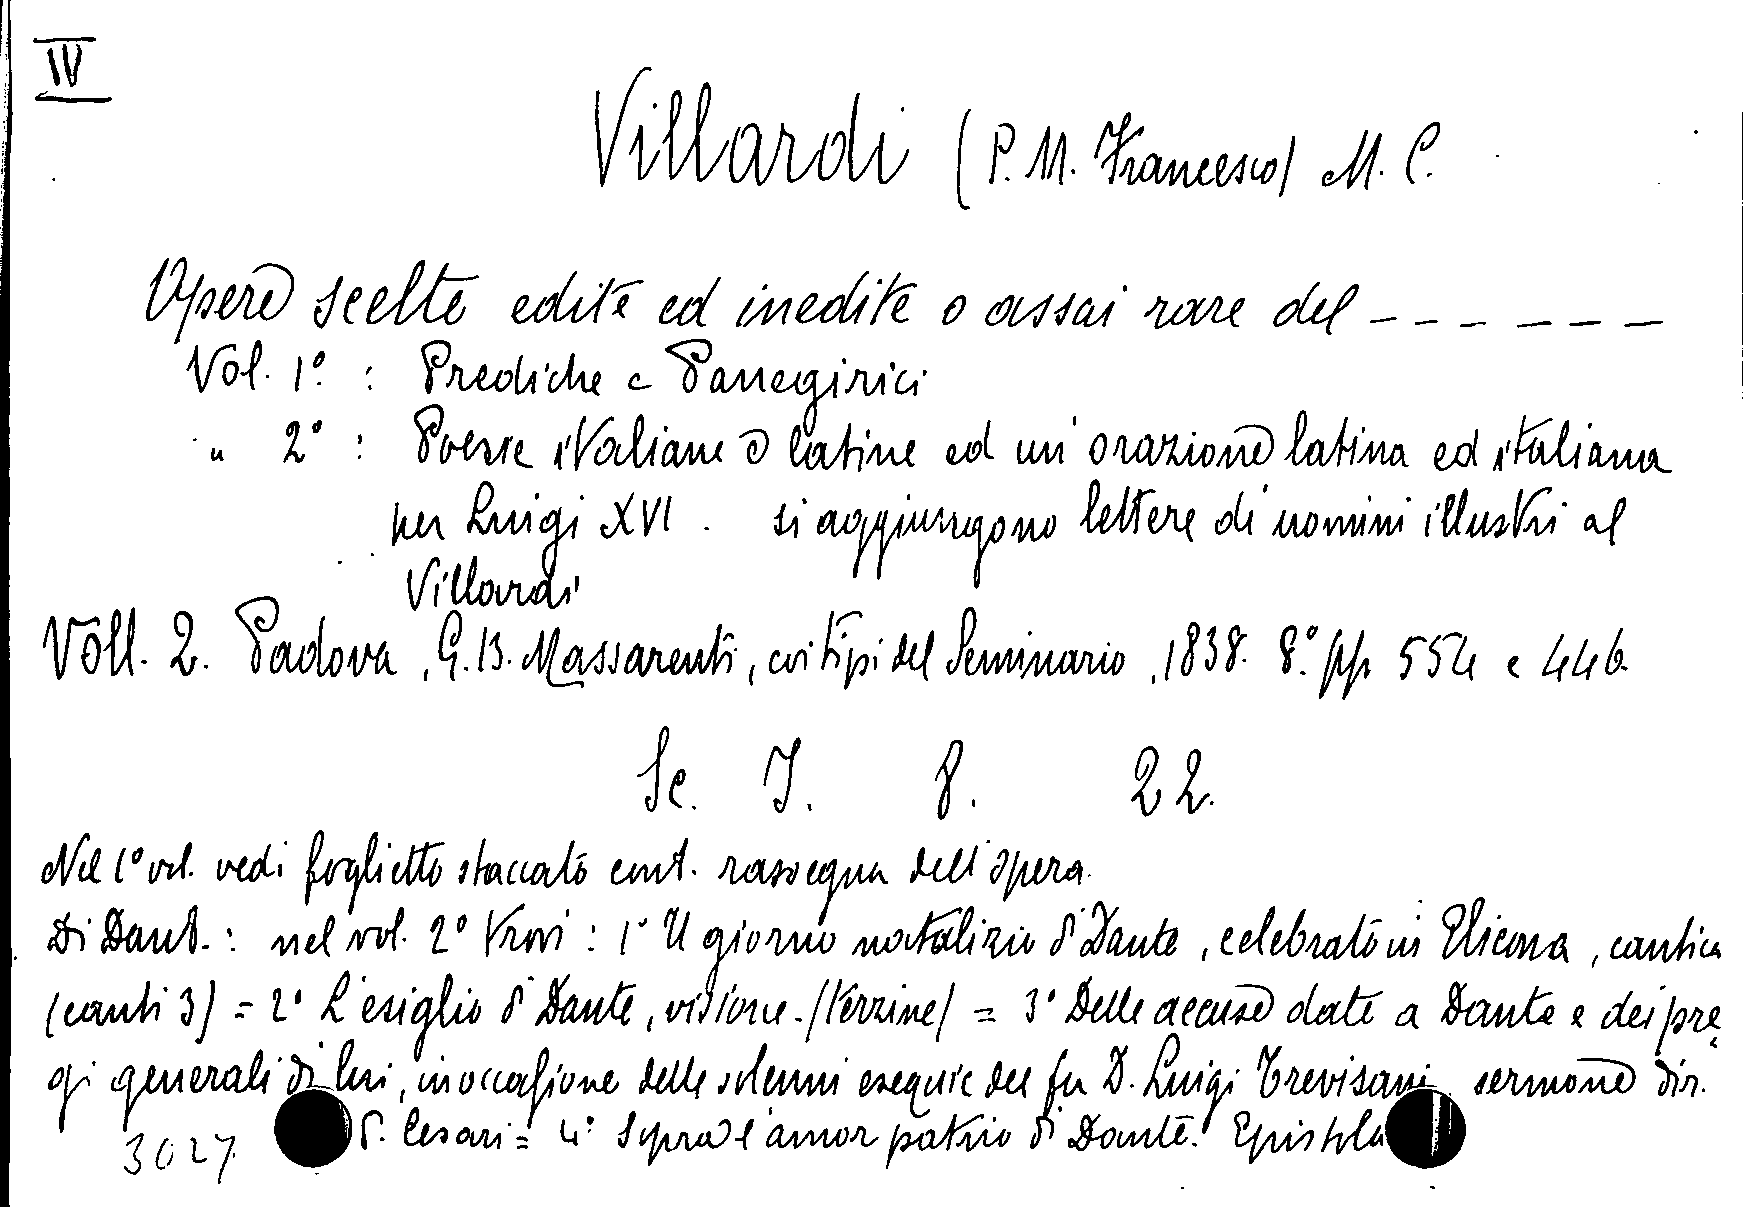 IV
Villardi (P. M. Francesco) M. C.
Opere scelte edite ed inedite o assai rare del - - - - - -
Vol. 1°. : Prediche e Panegirici
" 2° : Poesie italiane e latine ed un'orazione latina ed italiana
per Luigi XVI. si aggiungono lettere di uomini illustri al
Villardi
Voll. 2. Padova, G. B. Massarenti, coi tipi del Seminario, 1838. 8°. pp 554 e 446.
Sc. I. 8. 22.
Nel 1° vol. vedi foglietto staccato cont. rassegna dell'opera.
Di Dant. : nel vol. 2° trovi : 1° Il giorno natalizio di Dante, celebrato in Elicona, cantica
(canti 3) = 2° L'esiglio di Dante, visione. (terzine) = 3° Delle accuse date a Dante e dei pre
gi generali di lui, in occasione delle solenni esequie del fu D. Luigi Trevisani sermone dir.
P. Cesari = 4° Sopra l'amor patrio di Dante. Epistola
3027